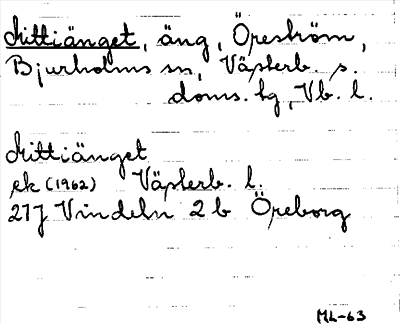 Mittiänget, äng, Öreström,
Bjurholms sn, Västerb. s.
doms. hg, Vb. l.
Mittiänget
ek (1962) Västerb. l.
21J Vindeln 2b Öreborg
ML-63